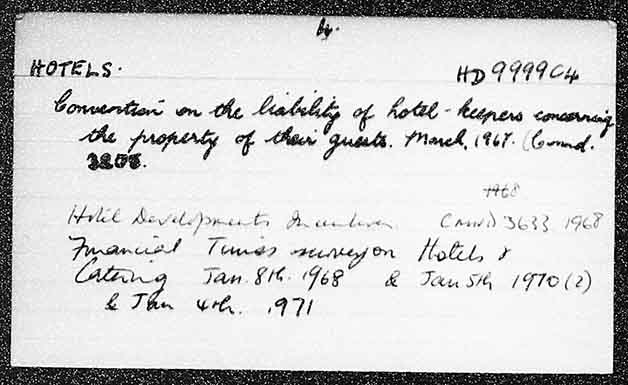 by.
HOTELS. HD 9999 C4
Convention on the liability of hotel-keepers concerning
the property of their guests. March, 1967. (Cmnd.
3205.
1968
Hotel Developments Incentives CMND 3633 1968
Financial Times survey on Hotels &
Catering Jan. 8th. 1968 & Jan 5th 1970 (2)
& Jan 4th. 1971